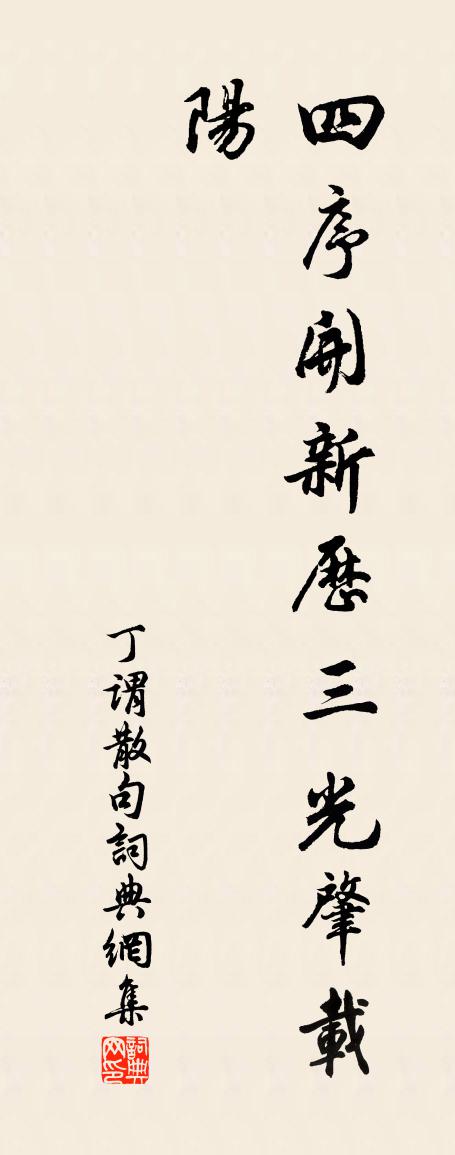 四序開新歷三光肇載
陽
丁謂散句詞典網集
詞典网印